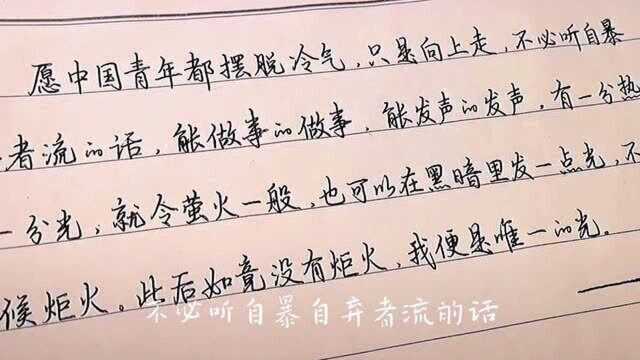 愿中国青年都摆脱冷气，只是向上走，不必听自暴
者流的话，能做事的做事，能发声的发声，有一分热
一分光，就令萤火一般，也可以在黑暗里发一点光，不
候炬火。此后如竟没有炬火，我便是唯一的光。
不必听自暴自弃者流的话